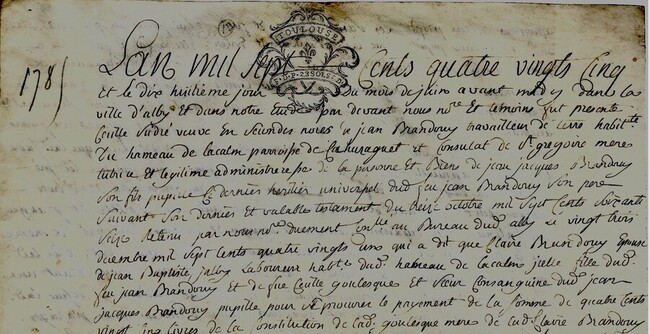 1785
TOULOUSE
Lan mil sept Cents quatre vingts Cinq
et le dix huitieme jour du mois de juin avant midy dans la
ville d'alby et dans notre étude par devant nous nore et temoins fut presente
veuve En secondes nores de jean Brandouy travailleur de terre habitte
Du hameau de lacalm parroisse de et consulat de St gregoire mere
tutrice et legitime administreresse de la personne et Biens de jean jacques Brandouy
son fils pupille Et dernier heritier universel dud feu jean Brandouy son pere
suivant son dernier et valable testament du treize octobre mil sept Cents soixante
seize Retenu par nous nore duement Conlle au Bureau dud alby le vingt trois
decembre mil sept Cents quatre vingts uns qui a dit que Claire Brandouy Epouse
de jean Baptiste jalby laboureur habtt dud hameau de lacalm fille dud
feu jean Brandouy et de feue goulesques et sœur Consanguine dud jean
jacques Brandouy pupille pour se procurer le payement de la somme de quatre Cents
vingt cinq livres de la Constitution de lad goulesque mere de lad Claire Brandouy